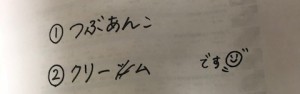 ① つぶあんこ
② クリーム です☺